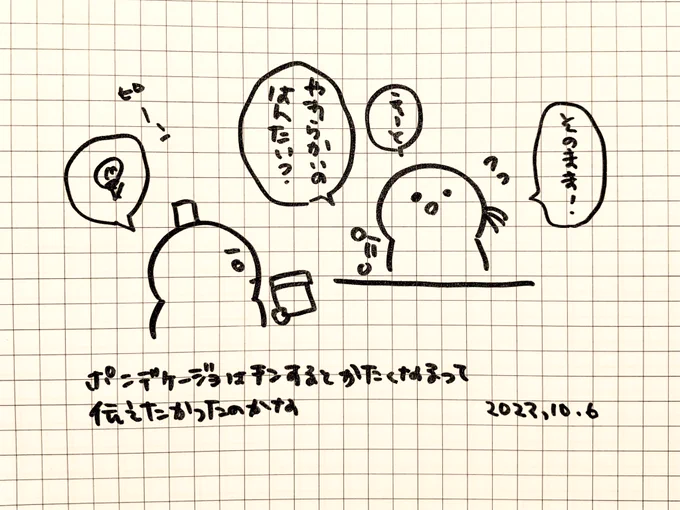 そのまま!
えーと
やわらかいの
はんたいっ
ピーン
ポンデケージョはチンするとかたくなるって
伝えたかったのかな
2022.10.6